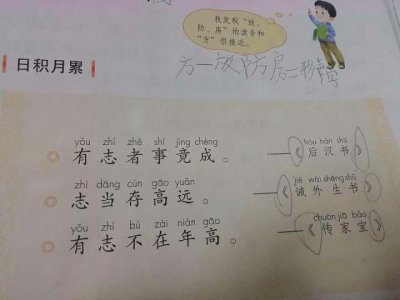 我发现“放、
防、房”的读音和
“方”很接近。
方一放防房二形声
日积月累
yǒu zhì zhě shì jìng chéng
有志者事竟成。
hòu hàn shū
——《后汉书》
zhì dāng cún gāo yuǎn
志当存高远。
jiè wài shēng shū
——《诫外生书》
yǒu zhì bú zài nián gāo
有志不在年高。
chuán jiā bǎo
——《传家宝》